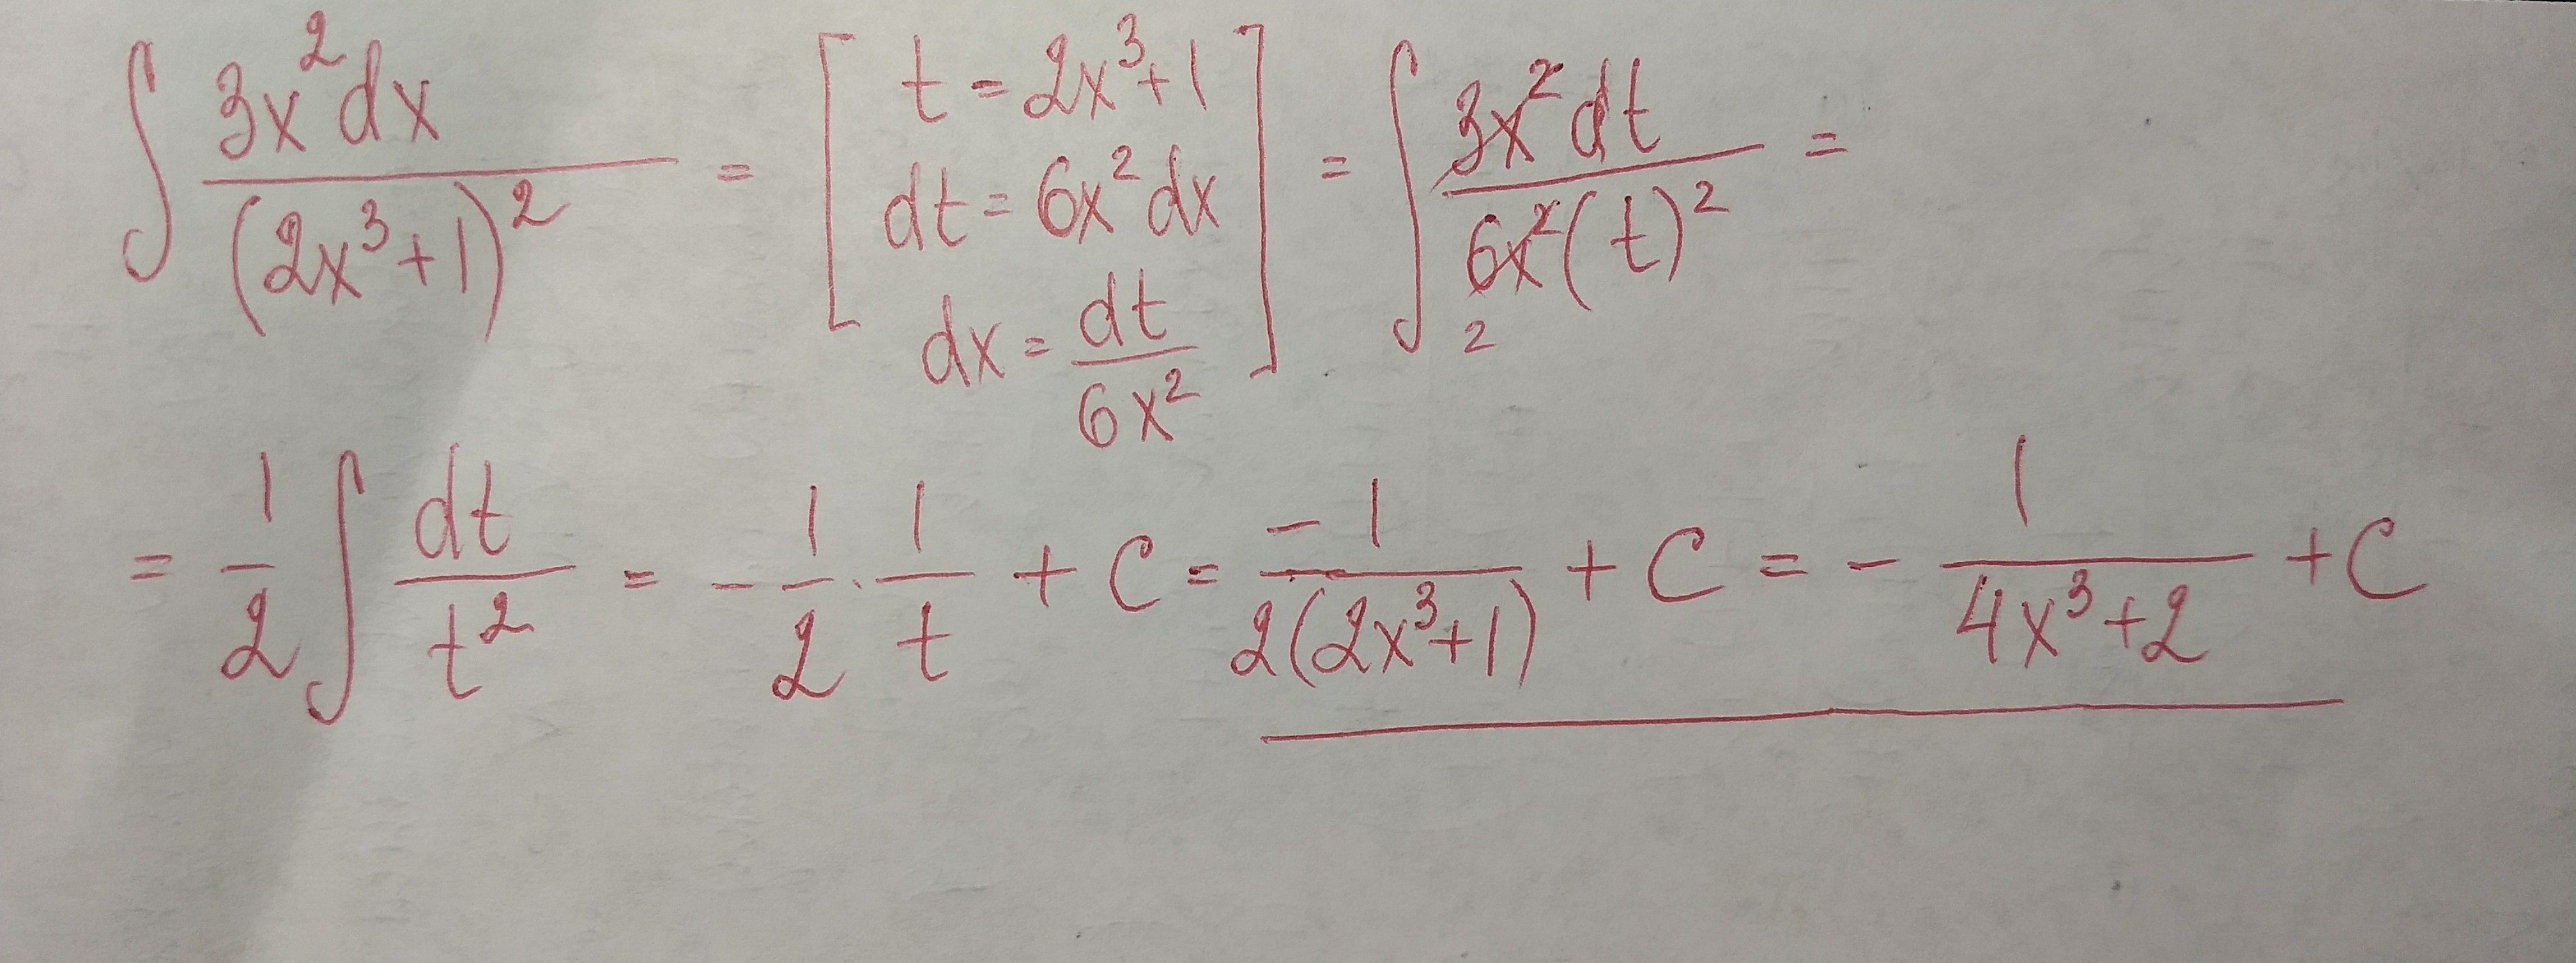 ∫ 3x²dx / (2x³+1)² = [ t = 2x³+1 dt = 6x²dx dx = dt / 6x² ] = ∫ 3x²dt / 6x²(t)² 2 =
= 1/2 ∫ dt / t² = - 1/2 · 1/t + C = -1 / 2(2x³+1) + C = - 1 / 4x³+2 + C